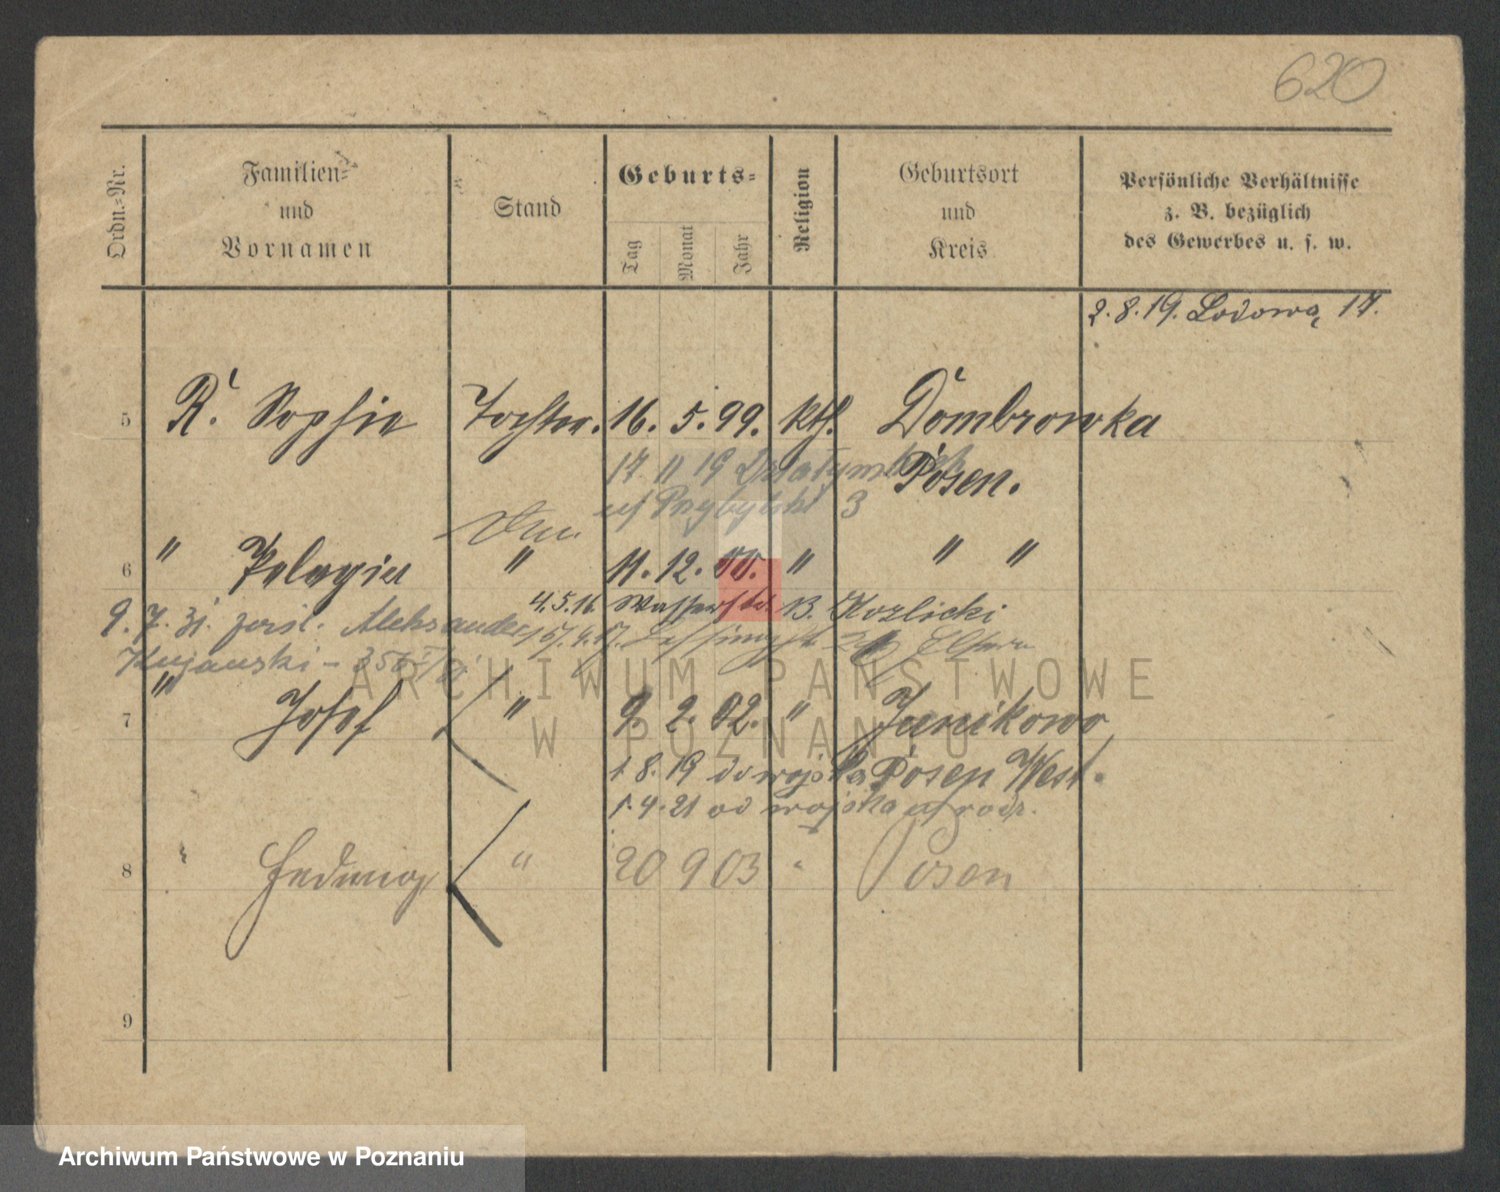 620
Ordn.-Nr.
Familien-
und
Vornamen
Stand
Geburts-
Tag Monat Jahr
Religion
Geburtsort
und
Kreis
Persönliche Verhältnisse
z. B. bezüglich
des Gewerbes u. s. w.
2.8.19. Lodowa 17.
5 R. Sophie Tochter. 16. 5. 99. kth. Dombrowka
17 11 19
Posen.
3
6 " Pelagia " 11. 12. 00. " " "
4.5.16. Wasserstr. 13. Kozlicki
9.7.31. Aleksander
Kujawski - Eltern
7 " Josef " 9. 2. 02. " Junikowo
1.8.19 do wojska Posen West.
1.4.21 od wojska
8 Hedwig " 20 9 03 " Posen
9
ARCHIWUM PAŃSTWOWE
W POZNANIU
Archiwum Państwowe w Poznaniu